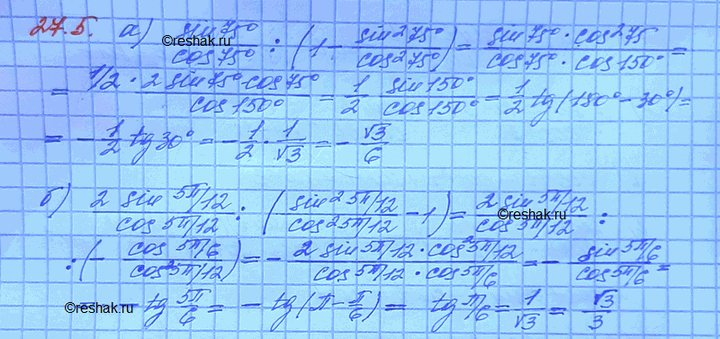 27.5. а) sin 75°/cos 75° : (1 - sin²75°/cos²75°) = sin 75° · cos²75/cos 75° · cos 150° =
©reshak.ru
= 1/2 · 2 sin 75° · cos 75°/cos 150° = 1/2 sin 150°/cos 150° = 1/2 tg(180° - 30°) =
= - 1/2 tg 30° = - 1/2 · 1/√3 = - √3/6
б) 2 sin 5π/12/cos 5π/12 : (sin² 5π/12/cos² 5π/12 - 1) = 2 sin 5π/12/cos 5π/12 :
©reshak.ru
: (- cos 5π/6/cos² 5π/12) = - 2 sin 5π/12 · cos² 5π/12/cos 5π/12 · cos 5π/6 = - sin 5π/6/cos 5π/6 =
= - tg 5π/6 = - tg(π - π/6) = tg π/6 = 1/√3 = √3/3
©reshak.ru